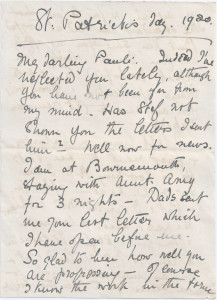 St. Patrick's Day. 1920.
My darling Pauli. Indeed I've
neglected you lately, although
you have not been far from
my mind. Has Stef not
shown you the letters I sent
him? Well now for news.
I am at Bournemouth,
staying with Aunt Amy
for 3 nights — Dad sent
me your last letter which
I have open before me.
So glad to hear how well you
are progressing — Of course
I know the work in the